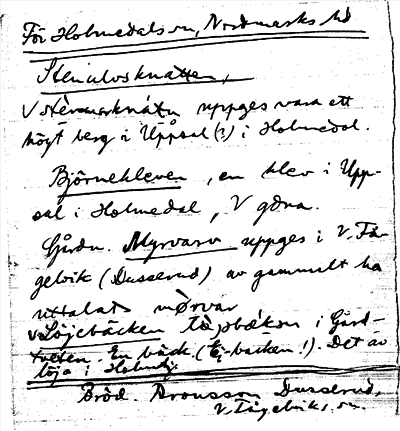 För Holmedals sn, Nordmarks hd
Stenulvsknatten,
V uppges vara ett
högt berg i Uppsal (?) i Holmedal.
Björnekleven, en klev i Upp-
sal i Holmedal, V gdna.
Gårdn. Myrvarv uppges i V. Få-
gelvik (Dusserud) av gammalt ha
uttalats mørvar
V Löjebäcken i Gård-
tveten. En bäck. (Ej -backen!). Det är
löja i
Bröd. Aronsson Dusserud,
V. Fågelviks sn.